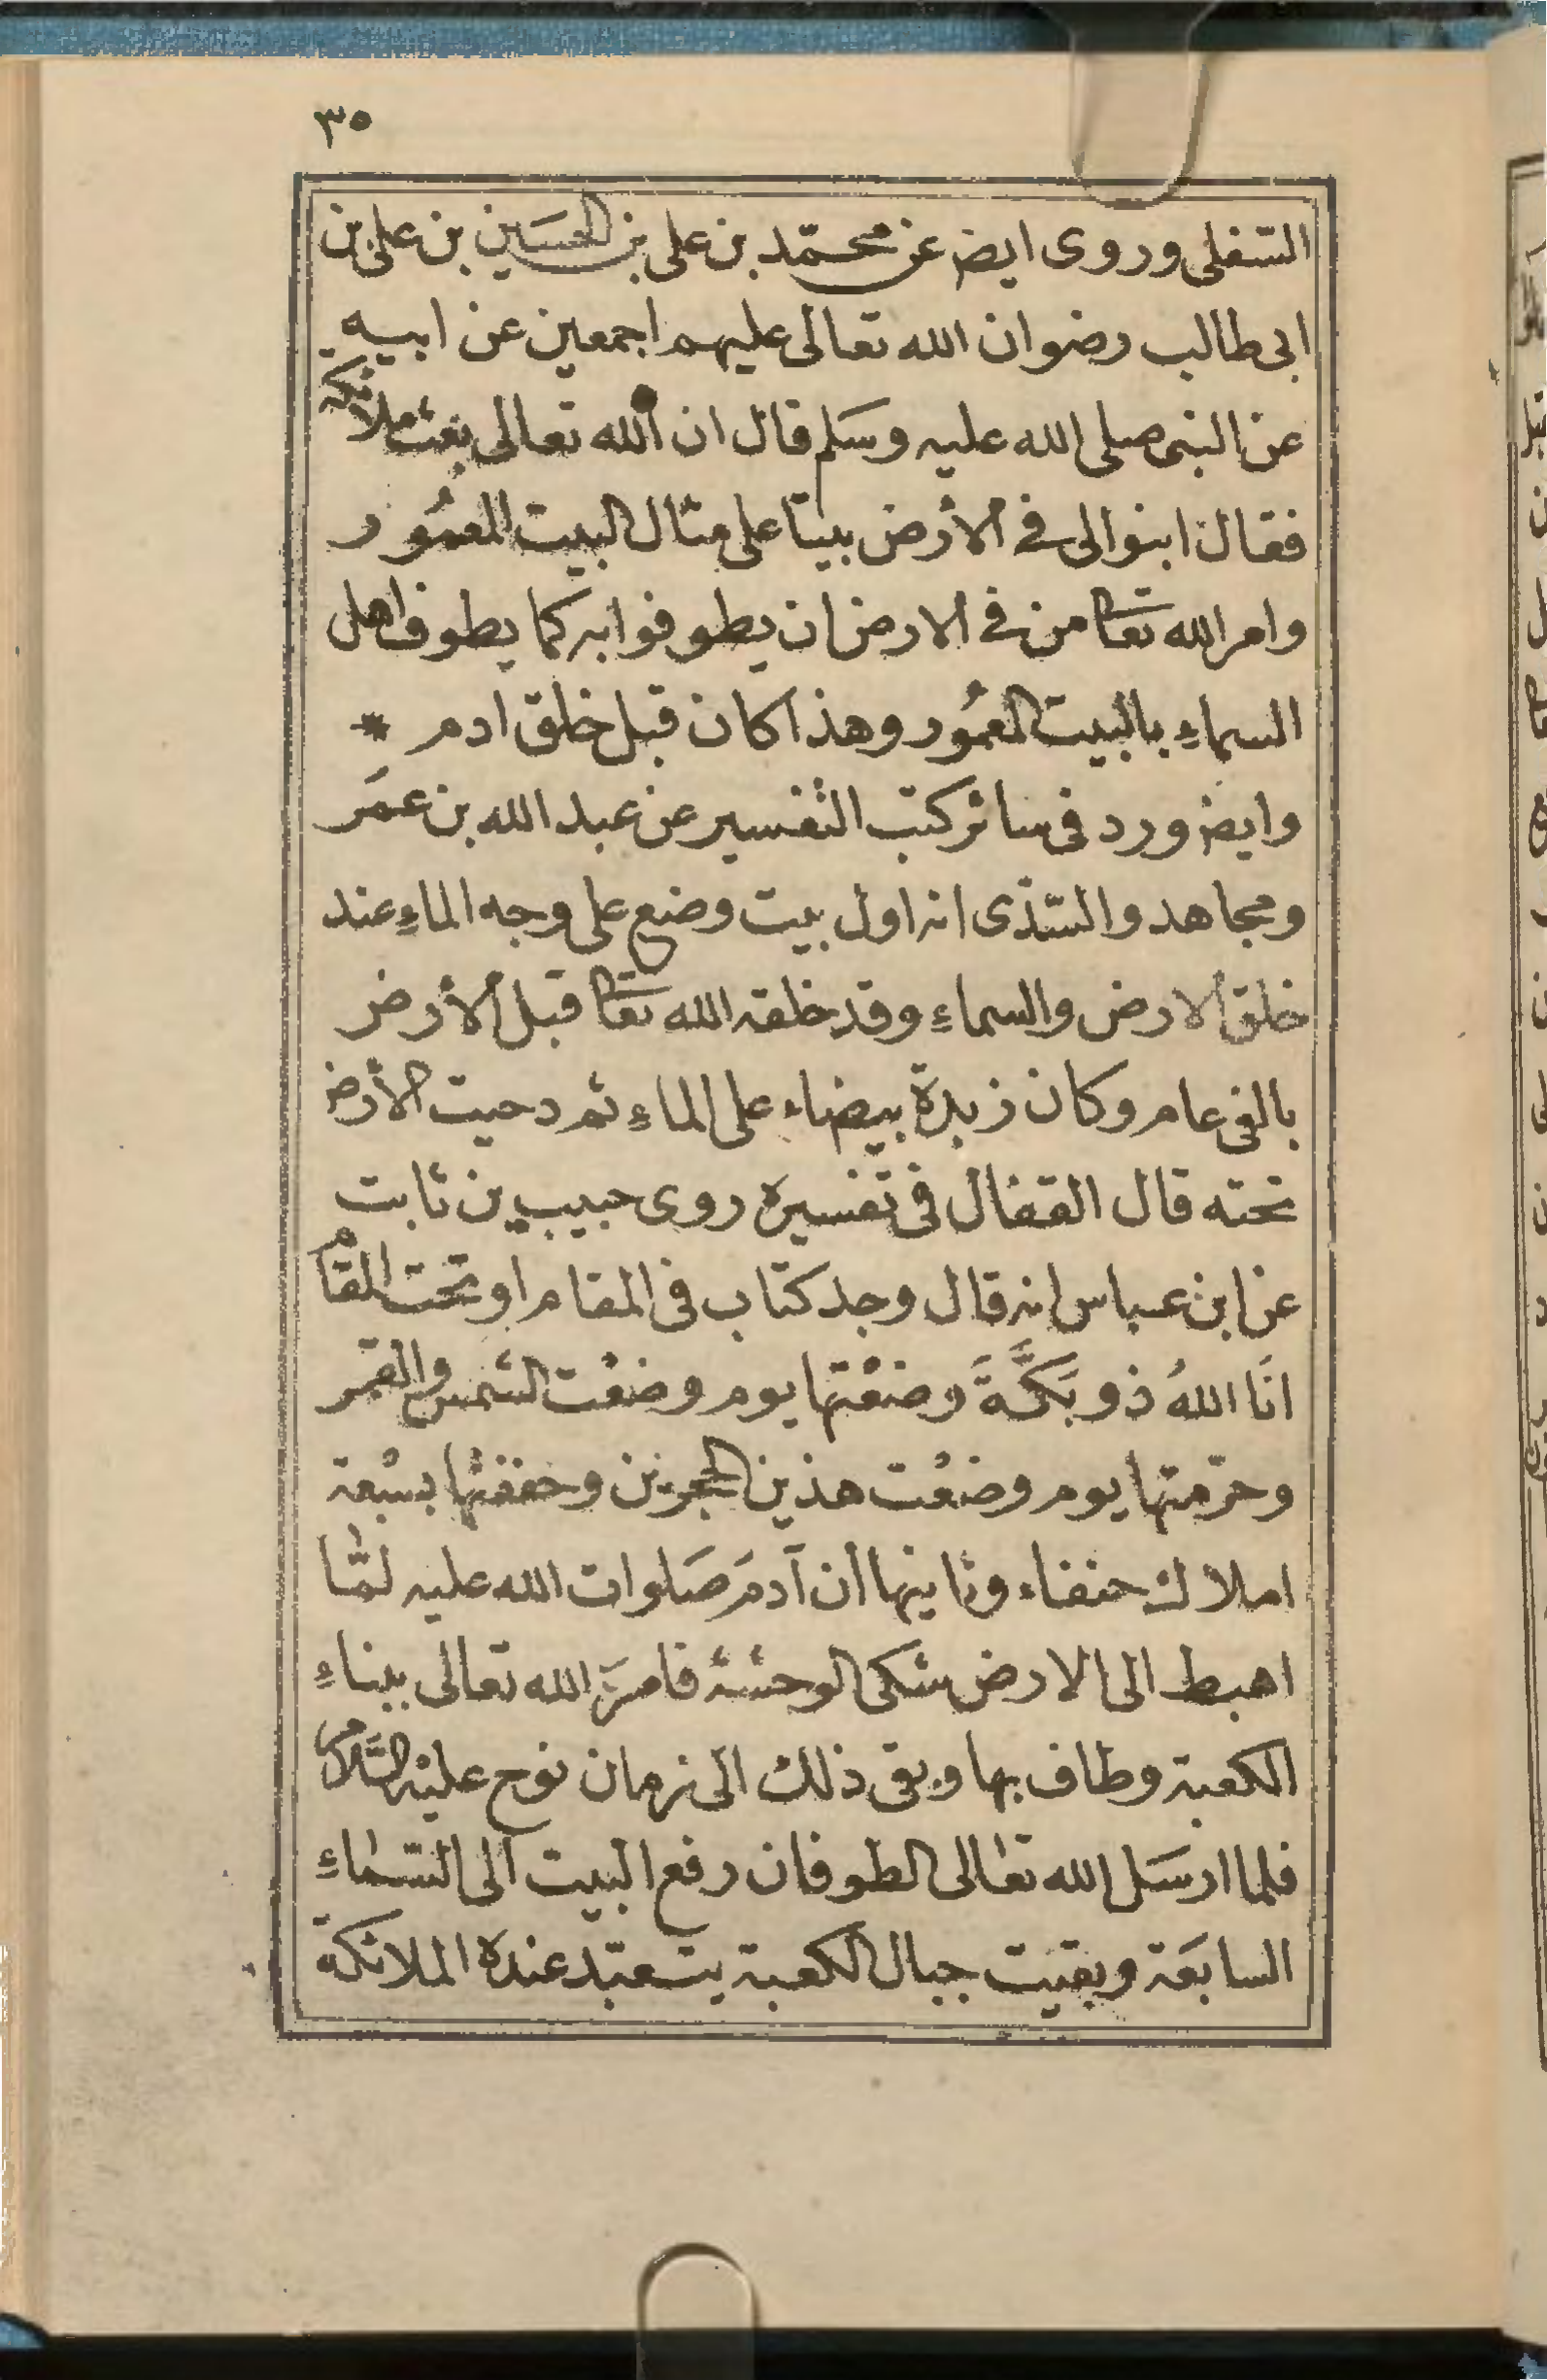 ٣٥
السّفلى وروى ايض عن محمّد بن على بن الحسَين بن على بن
ابى طالب رضوان الله تعالى عليهم اجمعين عن ابيه
عن النبى صلى الله عليه وسَلم قال ان الله تعالى بعث ملائكة
فقال ابنوا لى فى الأرض بيتا على مثال البيت المعمُور
وامر الله تعا من فى الارض ان يطوفوا به كما يطوف اهل
السماءِ بالبيت المعمُور وهذا كان قبل خلق ادم *
وايض ورد فى سائر كتب التفسير عن عبد الله بن عمَر
ومجاهد والسّدّى انه اول بيت وضع على وجه الماءِ عند
خلق الارض والسماءِ وقد خلقه الله تعا قبل الأرض
بالفى عام وكان زبدة بيضاء على الماءِ ثم دحيت الأرض
تحته قال القفال فى تفسيره روى حبيب بن ثابت
عن ابن عباس انه قال وجد كتاب فى المقام او تحت المقام
انَا اللهُ ذو بَكَّةَ وضعْتها يوم وضعْت الشمس والقمر
وحرّمتها يوم وضعْت هذين الحجرين وحففتها بسبْعة
املاك حنفاء وثانيها أن آدمَ صَلوات الله عليه لمّا
اهبط الى الارض شكى الوحشة فامرَه الله تعالى ببناءِ
الكعبة وطاف بها وبقى ذلك الى زمان نوح عليْه السَّلام
فلما ارسَل الله تعالى الطوفان رفع البيت الى السّماءِ
السابعَة وبقيت جبال الكعبة يتعبّد عنده الملائكة